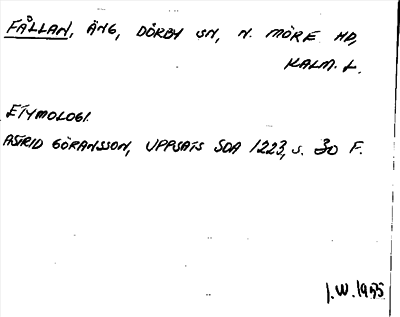 FÅLLAN, ÄNG, DÖRBY SN, N. MÖRE HD,
KALM. L.
ETYMOLOGI.
ASTRID GÖRANSSON, UPPSATS SOA 1223, S. 30 F.
J.W. 1955